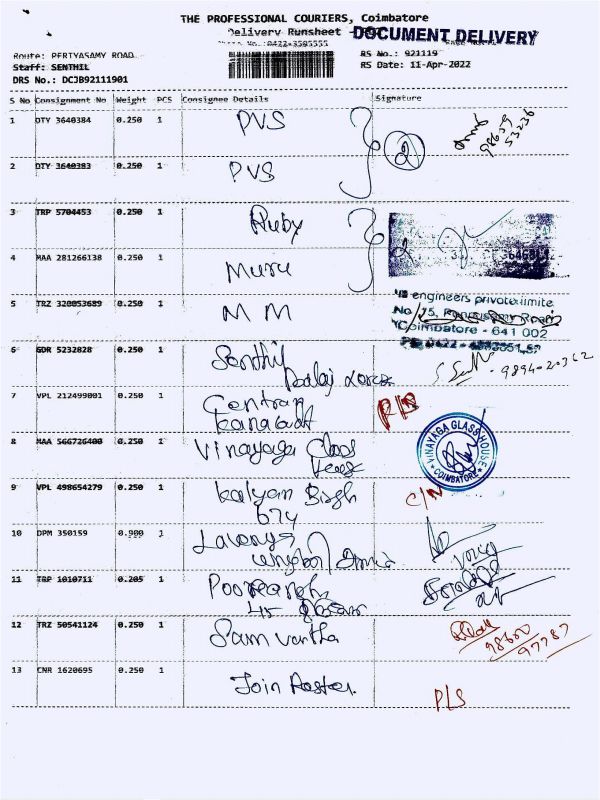 THE PROFESSIONAL COURIERS, Coimbatore
Delivery Runsheet
DOCUMENT DELIVERY
Phone No.:0422-3505555
Route: PERIYASAMY ROAD
RS No.: 921119
Staff: SENTHIL
RS Date: 11-Apr-2022
DRS No.: DCJB92111901
S No Consignment No Weight PCS Consignee Details Signature
1 DTY 3640384 0.250 1 PVS
2
98659
53236
2 DTY 3640383 0.250 1 PVS
3 TRP 5704453 0.250 1 Ruby
4 MAA 281266138 0.250 1 Muru
5 TRZ 320053689 0.250 1 M M
engineers private limite
No 75,
Coimbatore - 641 002
6 GDR 5232828 0.250 1 Senthil
Balaj
9894-20362
7 VPL 212499001 0.250 1 Central
P/S
8 MAA 566726400 0.250 1 Vinayaga Glass
VINAYAGA GLASS HOUSE
COIMBATORE
9 VPL 498654279 0.250 1 Kalyan Singh
674
C/N
10 DPM 350159 0.900 1 Lavanya
11 TRP 1010711 0.205 1
45
12 TRZ 50541124 0.250 1 Samvartha
98600
97787
13 CNR 1620695 0.250 1 Join Raster.
P/S